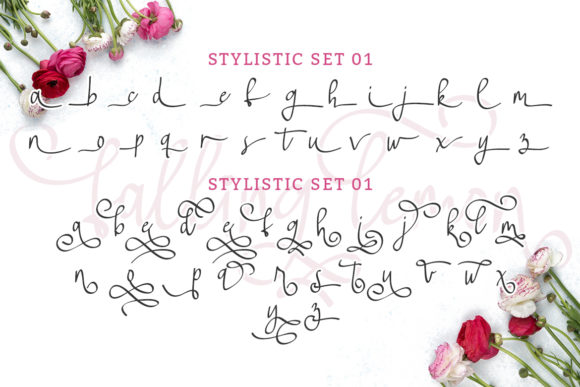 STYLISTIC SET 01
a b c d e f g h i j k l m
n o p q r s t u v w x y z
falling lemon
STYLISTIC SET 01
a b c d e f g h i j k l m
n o p q r s t u v w x
y z